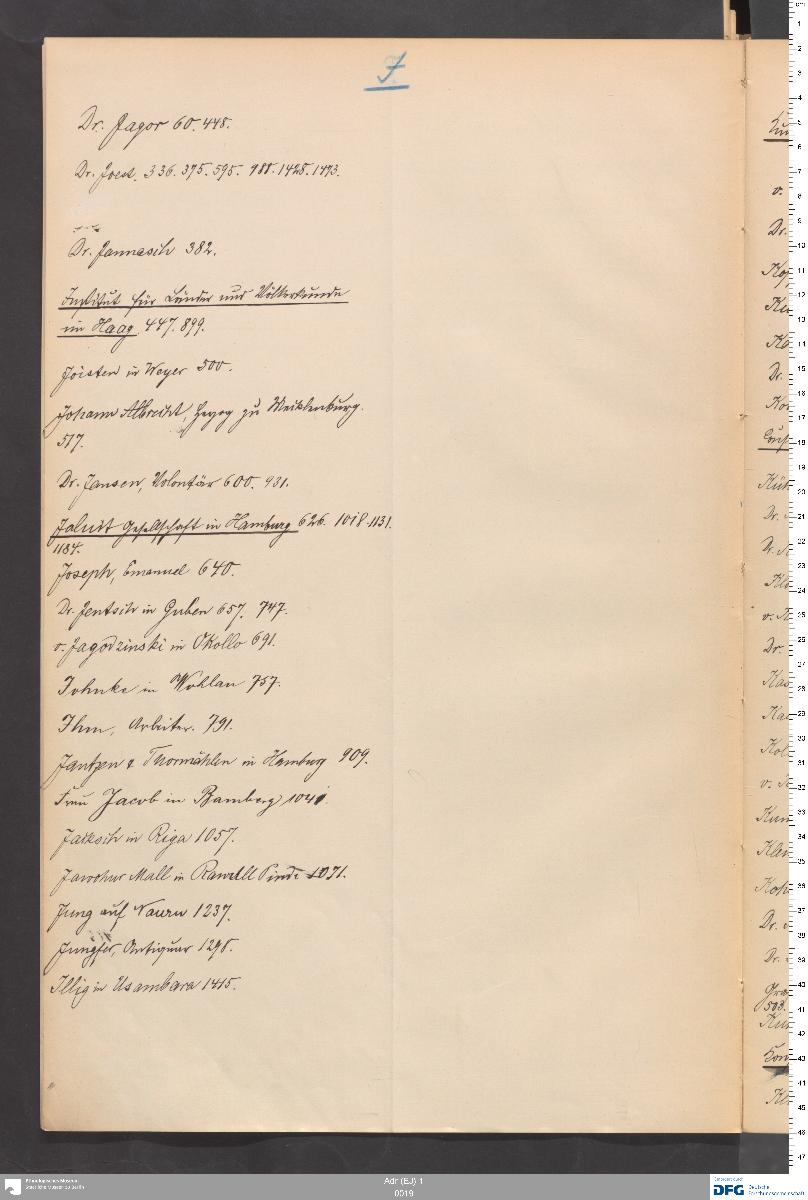 J.
Dr. Jagor 60. 448.
Dr. Joest. 336. 375. 595. 988. 1428. 1473.
Dr. Jannasch 382.
Institut für Länder und Völkerkunde
im Haag. 447. 899.
Joisten in Weyer 500.
Johann Albrecht, Herzog zu Mecklenburg.
517.
Dr. Jansen, Volontär 600. 931.
Jaluit Gesellschaft in Hamburg 626. 1018. 1131.
1184.
Joseph, Emanuel 640.
Dr. Jentsch in Guben 657. 747.
v. Jagodzinski in Okollo 691.
Johnke in Wohlau 757.
Ihm, Arbeiter. 791.
Jantzen & Thormählen in Hamburg 909.
Frau Jacob in Bamberg 1041.
Jacksch in Riga 1057.
Jawohur Mall in Rawall Pindi 1071.
Jung auf Nauru 1237.
Jungfer, Antiquar 1298.
Illig in Usambara 1415.
Ethnologisches Museum
Staatliche Museen zu Berlin
Adr (EJ) 1
0019
DFG
Deutsche
Forschungsgemeinschaft